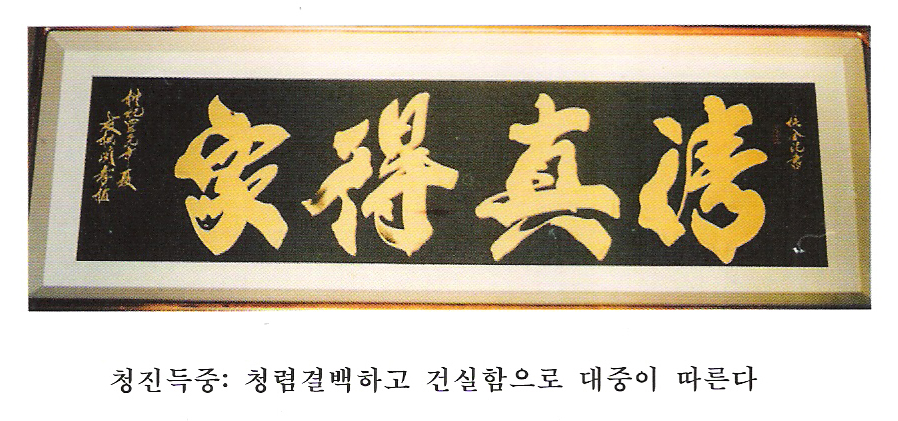 清真得衆
청진득중: 청렴결백하고 건실함으로 대중이 따른다